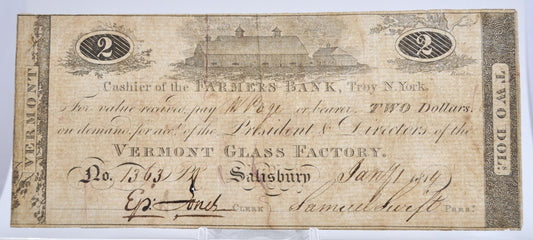 2 2
Cashier of the FARMERS BANK, Troy N. York.
For value received, pay or bearer TWO Dollars
on demand for acct. of the President & Directors of the
VERMONT GLASS FACTORY.
No. 1363 Salisbury Jany 1 1814
Ep: Jones CLERK Samuel Swift PRES.
VERMONT
TWO DOL: